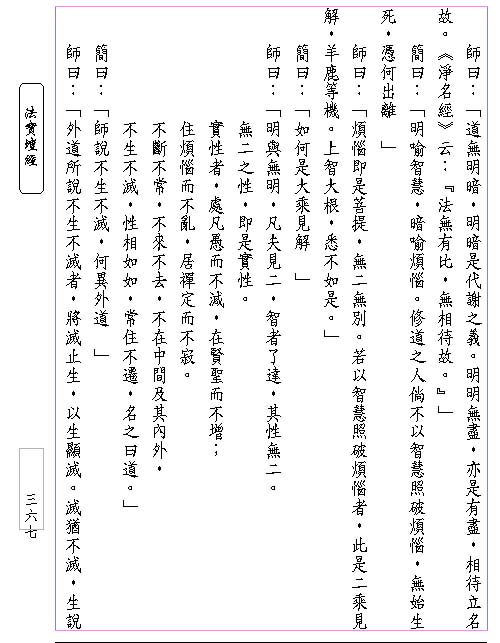 師曰：「道無明暗，明暗是代謝之義。明明無盡，亦是有盡，相待立名
故。《淨名經》云：『法無有比，無相待故。』」
簡曰：「明喻智慧，暗喻煩惱。修道之人倘不以智慧照破煩惱，無始生
死，憑何出離　」
師曰：「煩惱即是菩提，無二無別。若以智慧照破煩惱者，此是二乘見
解，羊鹿等機。上智大根，悉不如是。」
簡曰：「如何是大乘見解　」
師曰：「明與無明，凡夫見二，智者了達，其性無二。
無二之性，即是實性。
實性者，處凡愚而不減，在賢聖而不增；
住煩惱而不亂，居禪定而不寂。
不斷不常，不來不去，不在中間及其內外，
不生不滅，性相如如，常住不遷，名之曰道。」
簡曰：「師說不生不滅，何異外道　」
師曰：「外道所說不生不滅者，將滅止生，以生顯滅。滅猶不滅，生說
法寶壇經
三六七